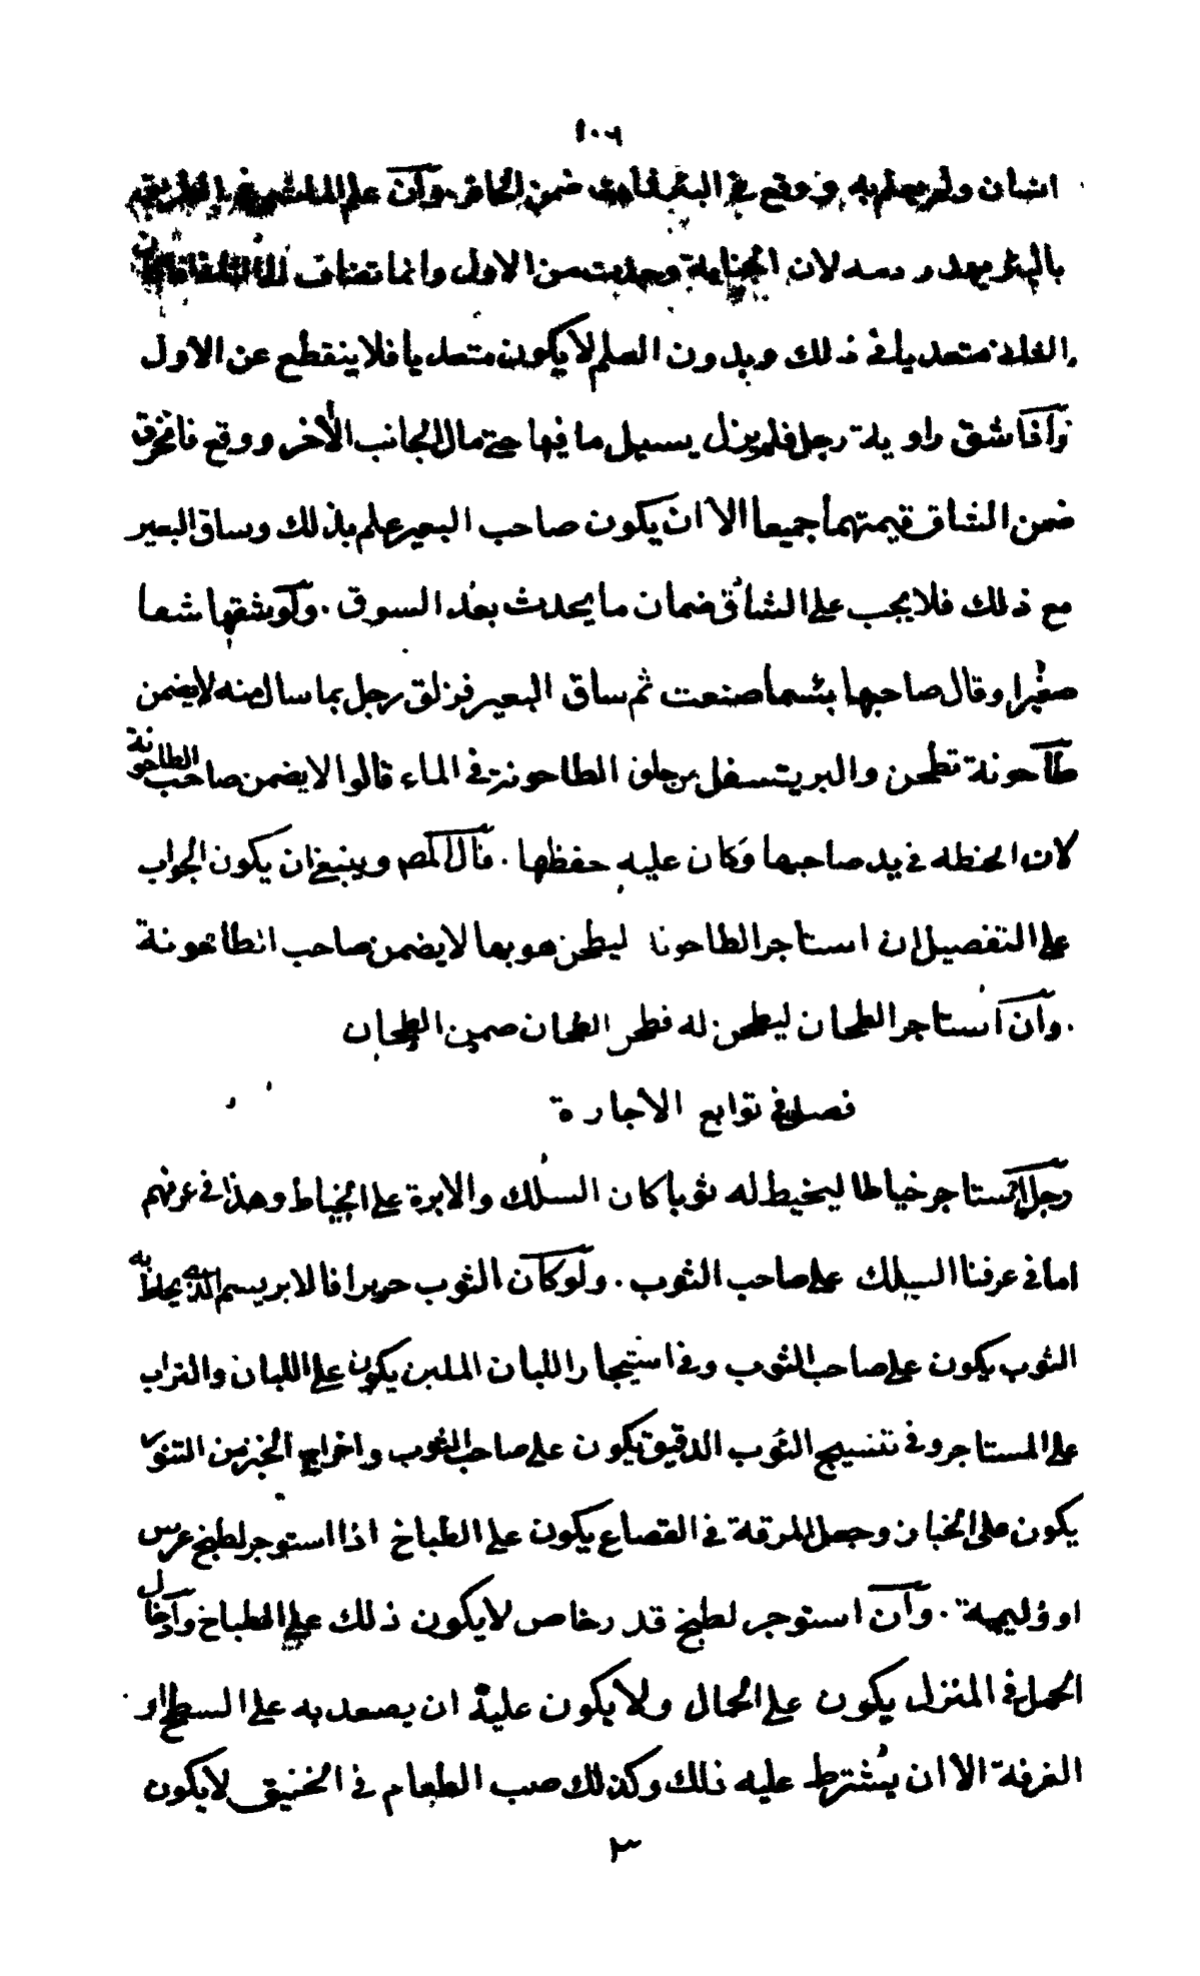 ١٠٦
انسان ولم يعلم به ووقع في البئر فمات ضمن الحافر وان علم الماشي في الطريق
بالبئر يهدر دمه لان الجناية وجدت من الاول وانما تضاف
متعديا في ذلك وبدون العلم لا يكون متعديا فلا ينقطع عن الاول
واذا شق راوية رجل فلم يزل يسيل ما فيها حتى مال الجانب الأخر ووقع فانخرق
ضمن الشاق قيمتهما جميعا الا ان يكون صاحب البعير علم بذلك وساق البعير
مع ذلك فلا يجب على الشاق ضمان ما يحدث بعد السوق . ولو شقها شقا
صغيرا وقال صاحبها بئسما صنعت ثم ساق البعير فزلق رجل بما سال منه لا يضمن
طاحونة تطحن والبر يتسفل من الطاحونة في الماء قالوا لا يضمن صاحب الطاحونة
لان الحنطة في يد صاحبها وكان عليه حفظها . قال المص وينبغي ان يكون الجواب
على التفصيل ان استاجر الطاحونا ليطحن هو بها لا يضمن صاحب الطاحونة
. وان استاجر الطحان ليطحن له فطحن الطحان ضمن الطحان
فصل في توابع الاجارة
رجل استاجر خياطا ليخيط له ثوبا كان السلك والابرة على الخياط وهذا في عرفهم
اما في عرفنا السلك على صاحب الثوب . ولو كان الثوب حريرا فالابريسم الذي يخاط به
الثوب يكون على صاحب الثوب وفي استيجار اللبان الملبن يكون على اللبان والتراب
على المستاجر وفي تنسيج الثوب الدقيق يكون على صاحب الثوب واخراج الخبز من التنور
يكون على الخباز وجعل المرقة في القصاع يكون على الطباخ اذا استوجر لطبخ عرس
او وليمة . وان استوجر لطبخ قدر خاص لا يكون ذلك على الطباخ وادخال
الحمل في المنزل يكون على الحمال ولا يكون عليه ان يصعد به على السطح او
الغرفة الا ان يشترط عليه ذلك وكذلك صب الطعام في الخنيق لا يكون
٣